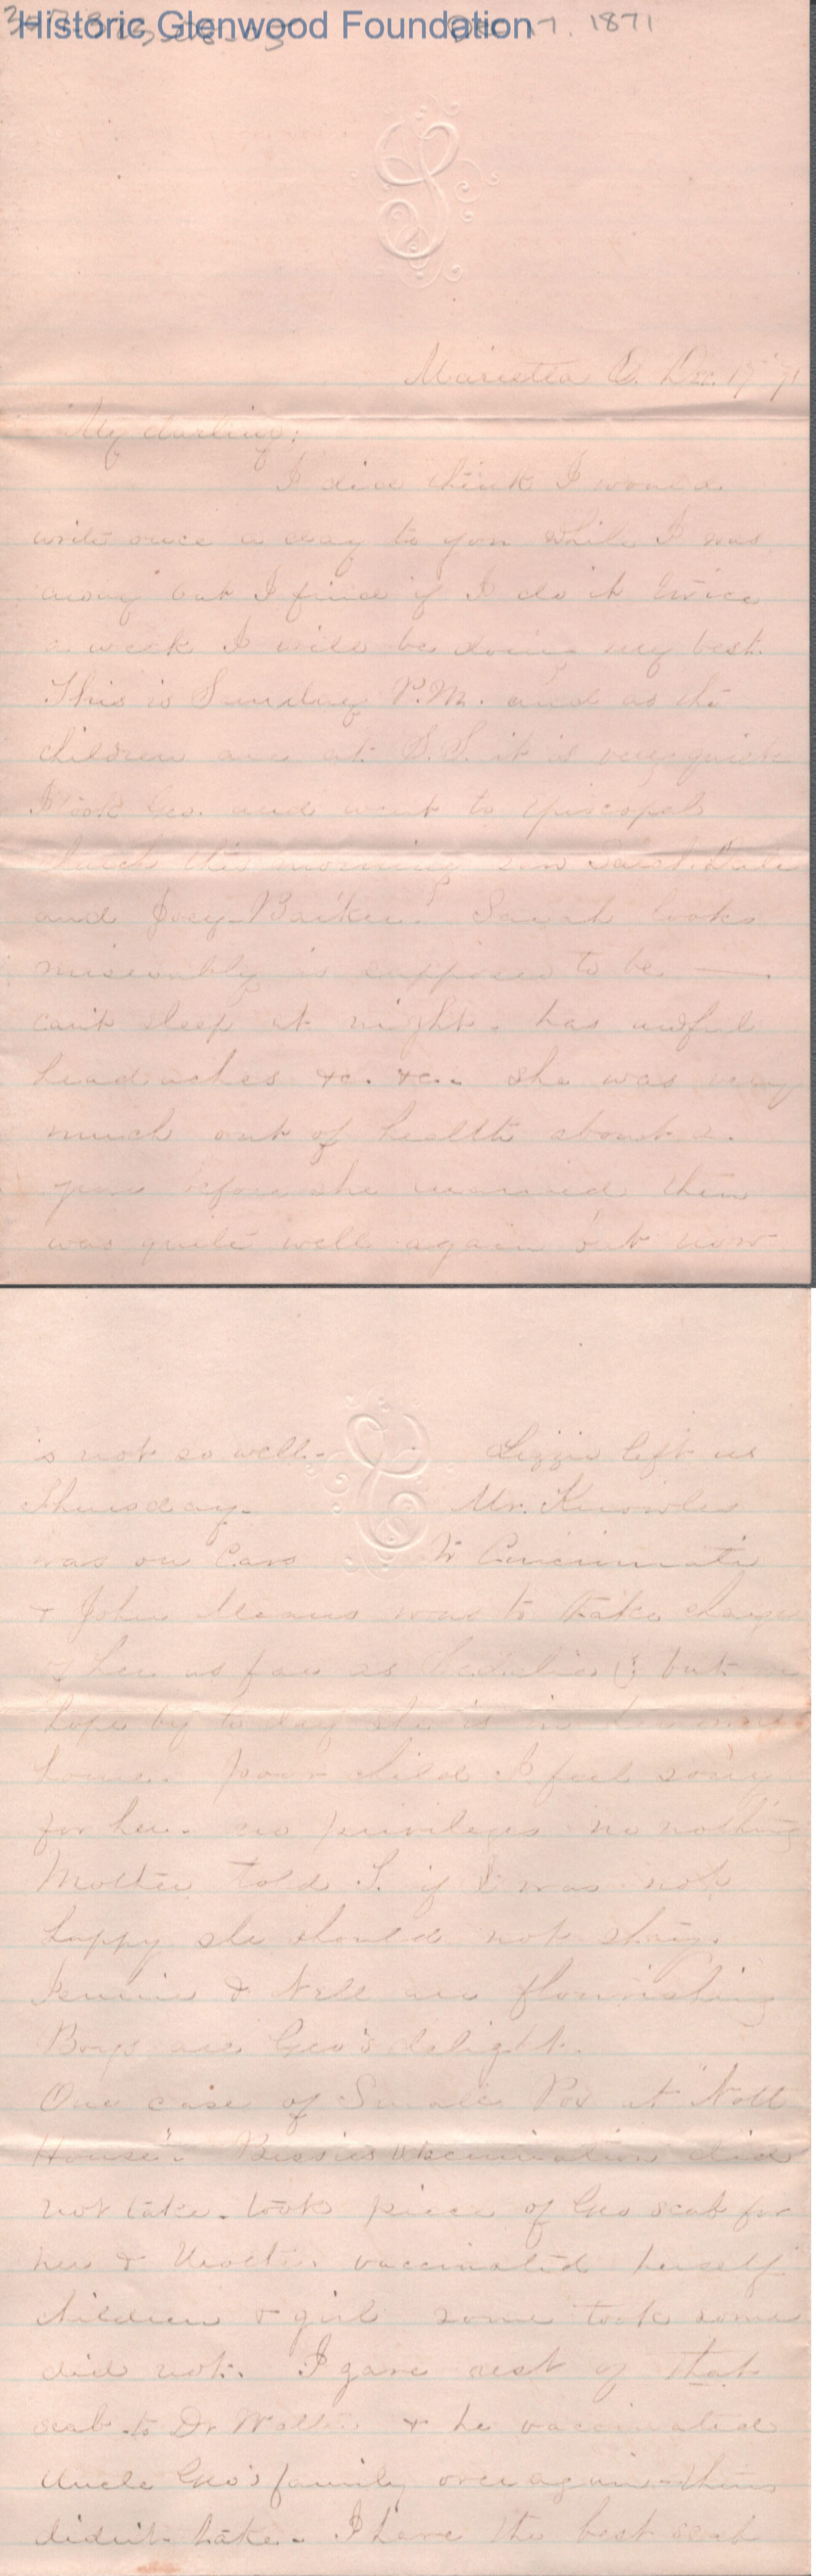 Historic Glenwood Foundation
Dec 17, 1871
Marietta O. Dec. 17" 71
My darling:
I did think I would
write once a day to you while I was
away but I find if I do it twice
a week I will be doing my best.
This is Sunday P.M. and as the
children are at S.S. it is very quiet
I took Geo. and went to Episcopal
this morning saw Sarah
and Joey Barker. Sarah looks
miserably is supposed to be —
can't sleep at night. has awful
headaches &c. &c.. she was very
much out of health about a
year before she married then
was quite well again but now
is not so well. Lizzie left us
Thursday. Mr. Knowles
was on Cars to Cincinnati
& John Means was to take charge
of her as far as but
hope by to day she is in
home. poor child I feel sorry
for her. no privileges no nothing
Mother told L. if I was not
happy she should not stay.
Jennie & Nell are flourishing
Boys are Geo's delight.
One case of Small Pox at "Nott
House". Bessies vaccination did
not take. took piece of Geo scab for
her & Mother vaccinated herself
children & girl some took some
did not. I gave rest of that
scab to Dr & he vaccinated
Uncle Geo's family over again theirs
didn't take. I have the best scab